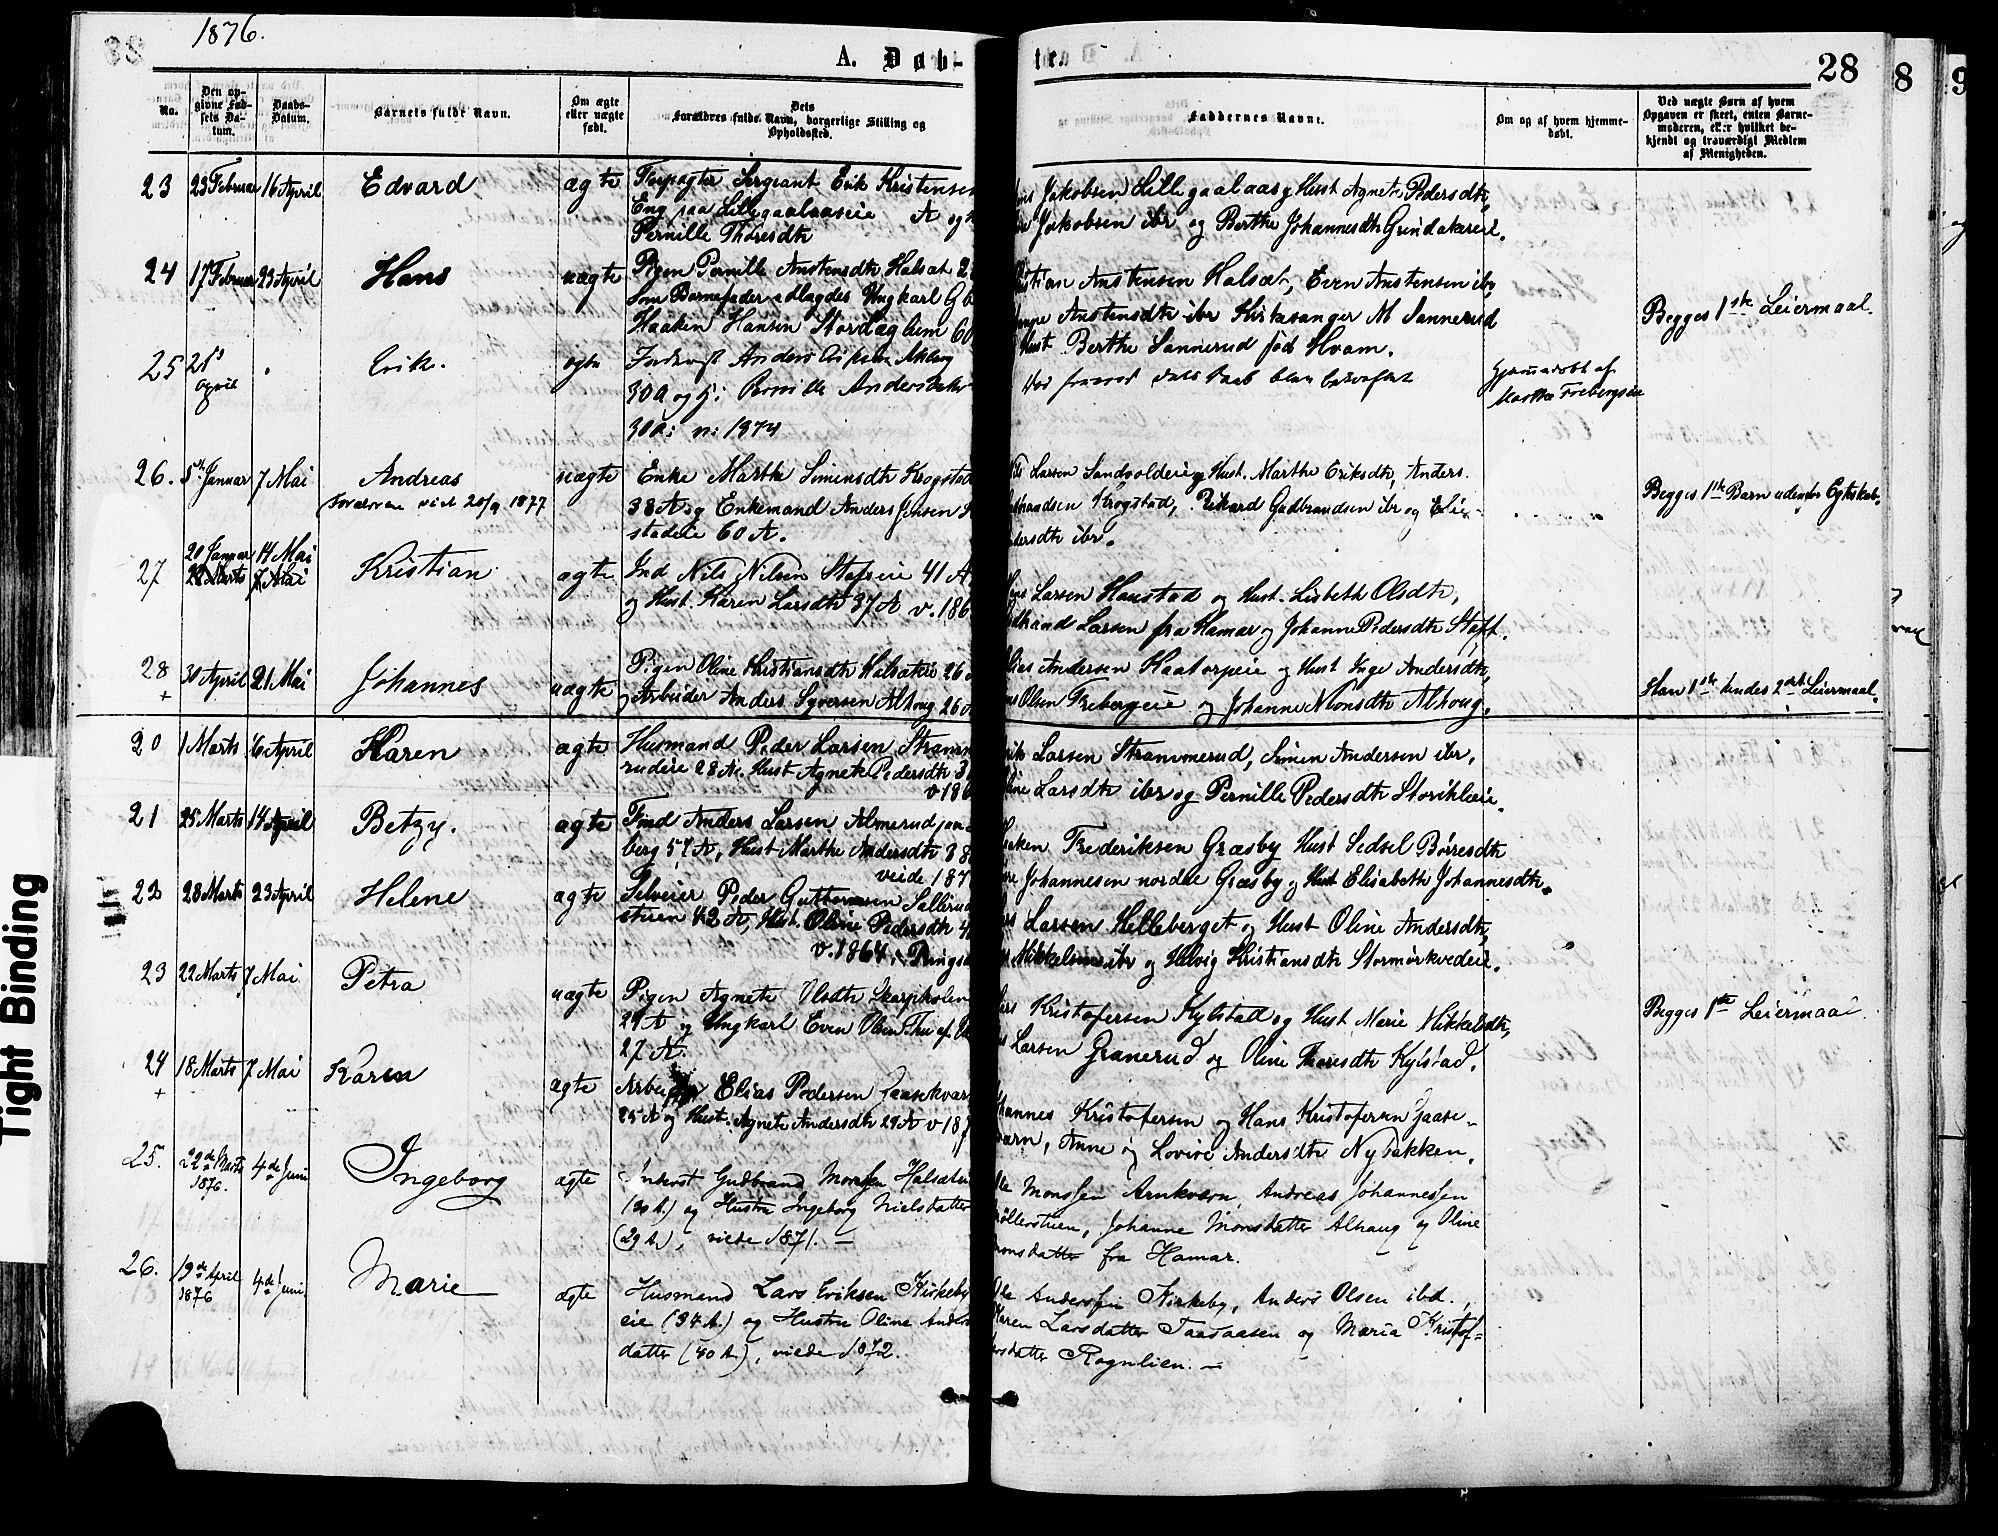 1876.
A. Døb-
te.
28
8
9
No.
Den op-
givne Fød-
sels Da-
tum.
Daabs-
Datum.
Barnets fulde Navn.
Om ægte
eller uægte
født.
Dets
Forældres fulde Navn, borgerlige Stilling og
Opholdssted.
Faddernes Navne.
Om og af hvem hjemme-
døbt.
Ved uægte Børn af hvem
Opgaven er skeet, enten Barne-
moderen, eller hvilket be-
kjendt og troværdigt Medlem
af Menigheden.
23 23 Februar 16 April Edvard ægte Forpagter Sergeant Erik Kristensen
Eng paa Lillegaalaaseie A og
Pernille Thoresdtr
Jakobsen Lillegaalaas og Hust Agnete Pedersdtr,
Jakobsen ibr og Berthe Johannesdtr Grindakereie.
24 17 Februar 23 April Hans uægte Pigen Pernille Anstensdtr Halsæt
Som Barnefader udlagdes Ungkarl G
Haaken Hansen Stordæglum 60
Anstensen Halsæt, Even Anstensen ibr,
Anstensdtr ibr Kirkesanger M Sannerud
Hust Berthe Sannerud fød Hvam.
Begges 1ste Leiermaal.
25 21 April Erik. ægte
Anders
30 A og Pernille
30 A: 1874
Hjemmedøbt af
Marthe Frebergseie
26. 5te Januar 7 Mai Andreas uægte Enke Marthe Simensdtr Krogstad
38 A og Enkemand Anders Jensen
stadeie 60 A.
20/9 1877
Larsen Sandvoldeie og Hust. Marthe Eriksdtr, Anders
Krogstad, Rikard Gudbrandsen ibr og
ibr.
Begges 1ste Barn udenfor Egteskab.
27 20 Januar 14 Mai
28 Marts 7 Mai
Kristian ægte Ind Nils Nilsen Stafseie 41 A
og Hust. Karen Larsdtr 37 A v. 186
Larsen Haustad og Hust. Lisbeth Olsdtr,
Larsen fra Hamar og Johanne Pedersdtr Staff.
28
+
30 April 21 Mai Johannes uægte Pigen Oline Kristiansdtr Halsæteie 26
og Arbeider Anders Syversen Alhoug 26 A
Andersen Haatorpeie og Hust Inge Andersdtr,
Olsen Frebergeie og Johanne Monsdtr Alhoug.
Han 1ste hendes 2det Leiermaal.
20 1 Marts 16 April Karen ægte Husmand Peder Larsen Stramme-
rudeie 28 A. Hust Agnete Pedersdtr 3
v 186
Larsen Strammerud, Simen Andersen ibr,
Larsdtr ibr og Pernille Pedersdtr
21 25 Marts 14 April Betzy. ægte Ind Anders Larsen Almerud paa
berg 57 A, Hust Marthe Andersdtr 38
viede 187
Haaken Frederiksen Græsby Hust Sidsel Børresdtr
Johannesen nordre Græsby og Hust Elisabeth Johannesdtr.
22 28 Marts 23 April Helene ægte Selveier Peder Guttormsen Sællerud
stuen 42 A, Hust. Oline Pedersdtr 4
v. 1864 i Ringsa
Larsen Helleberget og Hust Oline Andersdtr,
Mikkelsen ibr og Helvig Kristiansdtr Stormørkvedeie.
23 22 Marts 7 Mai Petra uægte Pigen Agnete Olsdtr Skarpholen
29 A og Ungkarl Even Olsen
27 A.
Kristofersen Kylstad og Hust Marie Mikkelsdtr,
Larsen Granerud og Oline Thoresdtr Kylstad.
Begges 1ste Leiermaal.
24
+
18 Marts 7 Mai Karen ægte Arbeider Elias Pedersen Gaasekvar
25 A og Hust. Agnete Andersdtr 29 A v 187
Johannes Kristofersen og Hans Kristofersen Gaase-
kvarn, Anne og Lovise Andersdtr Nybakken.
25. 22de Marts
1876.
4de Juni Ingeborg ægte Inderst Gudbrand Monsen Halsæteie
(30 A.) og Hustru Ingeborg Nielsdatter
(29 A.), viede 1871. —
Ole Monssen Arnkværn, Andreas Johannessen
Møllerstuen, Johanne Monsdatter Alhaug og Oline
Monsdatter fra Hamar.
26. 19de April
1876
4de Juni Marie ægte Husmand Lars Eriksen Kirkeby
eie (34 A.) og Hustru Oline Anders
datter (40 A.), viede 1872.
Ole Anderssen Kirkeby, Anders Olsen ibd.,
Karen Larsdatter Taasaasen og Maria Kristof-
ersdatter Rognlien. —
Tight Binding